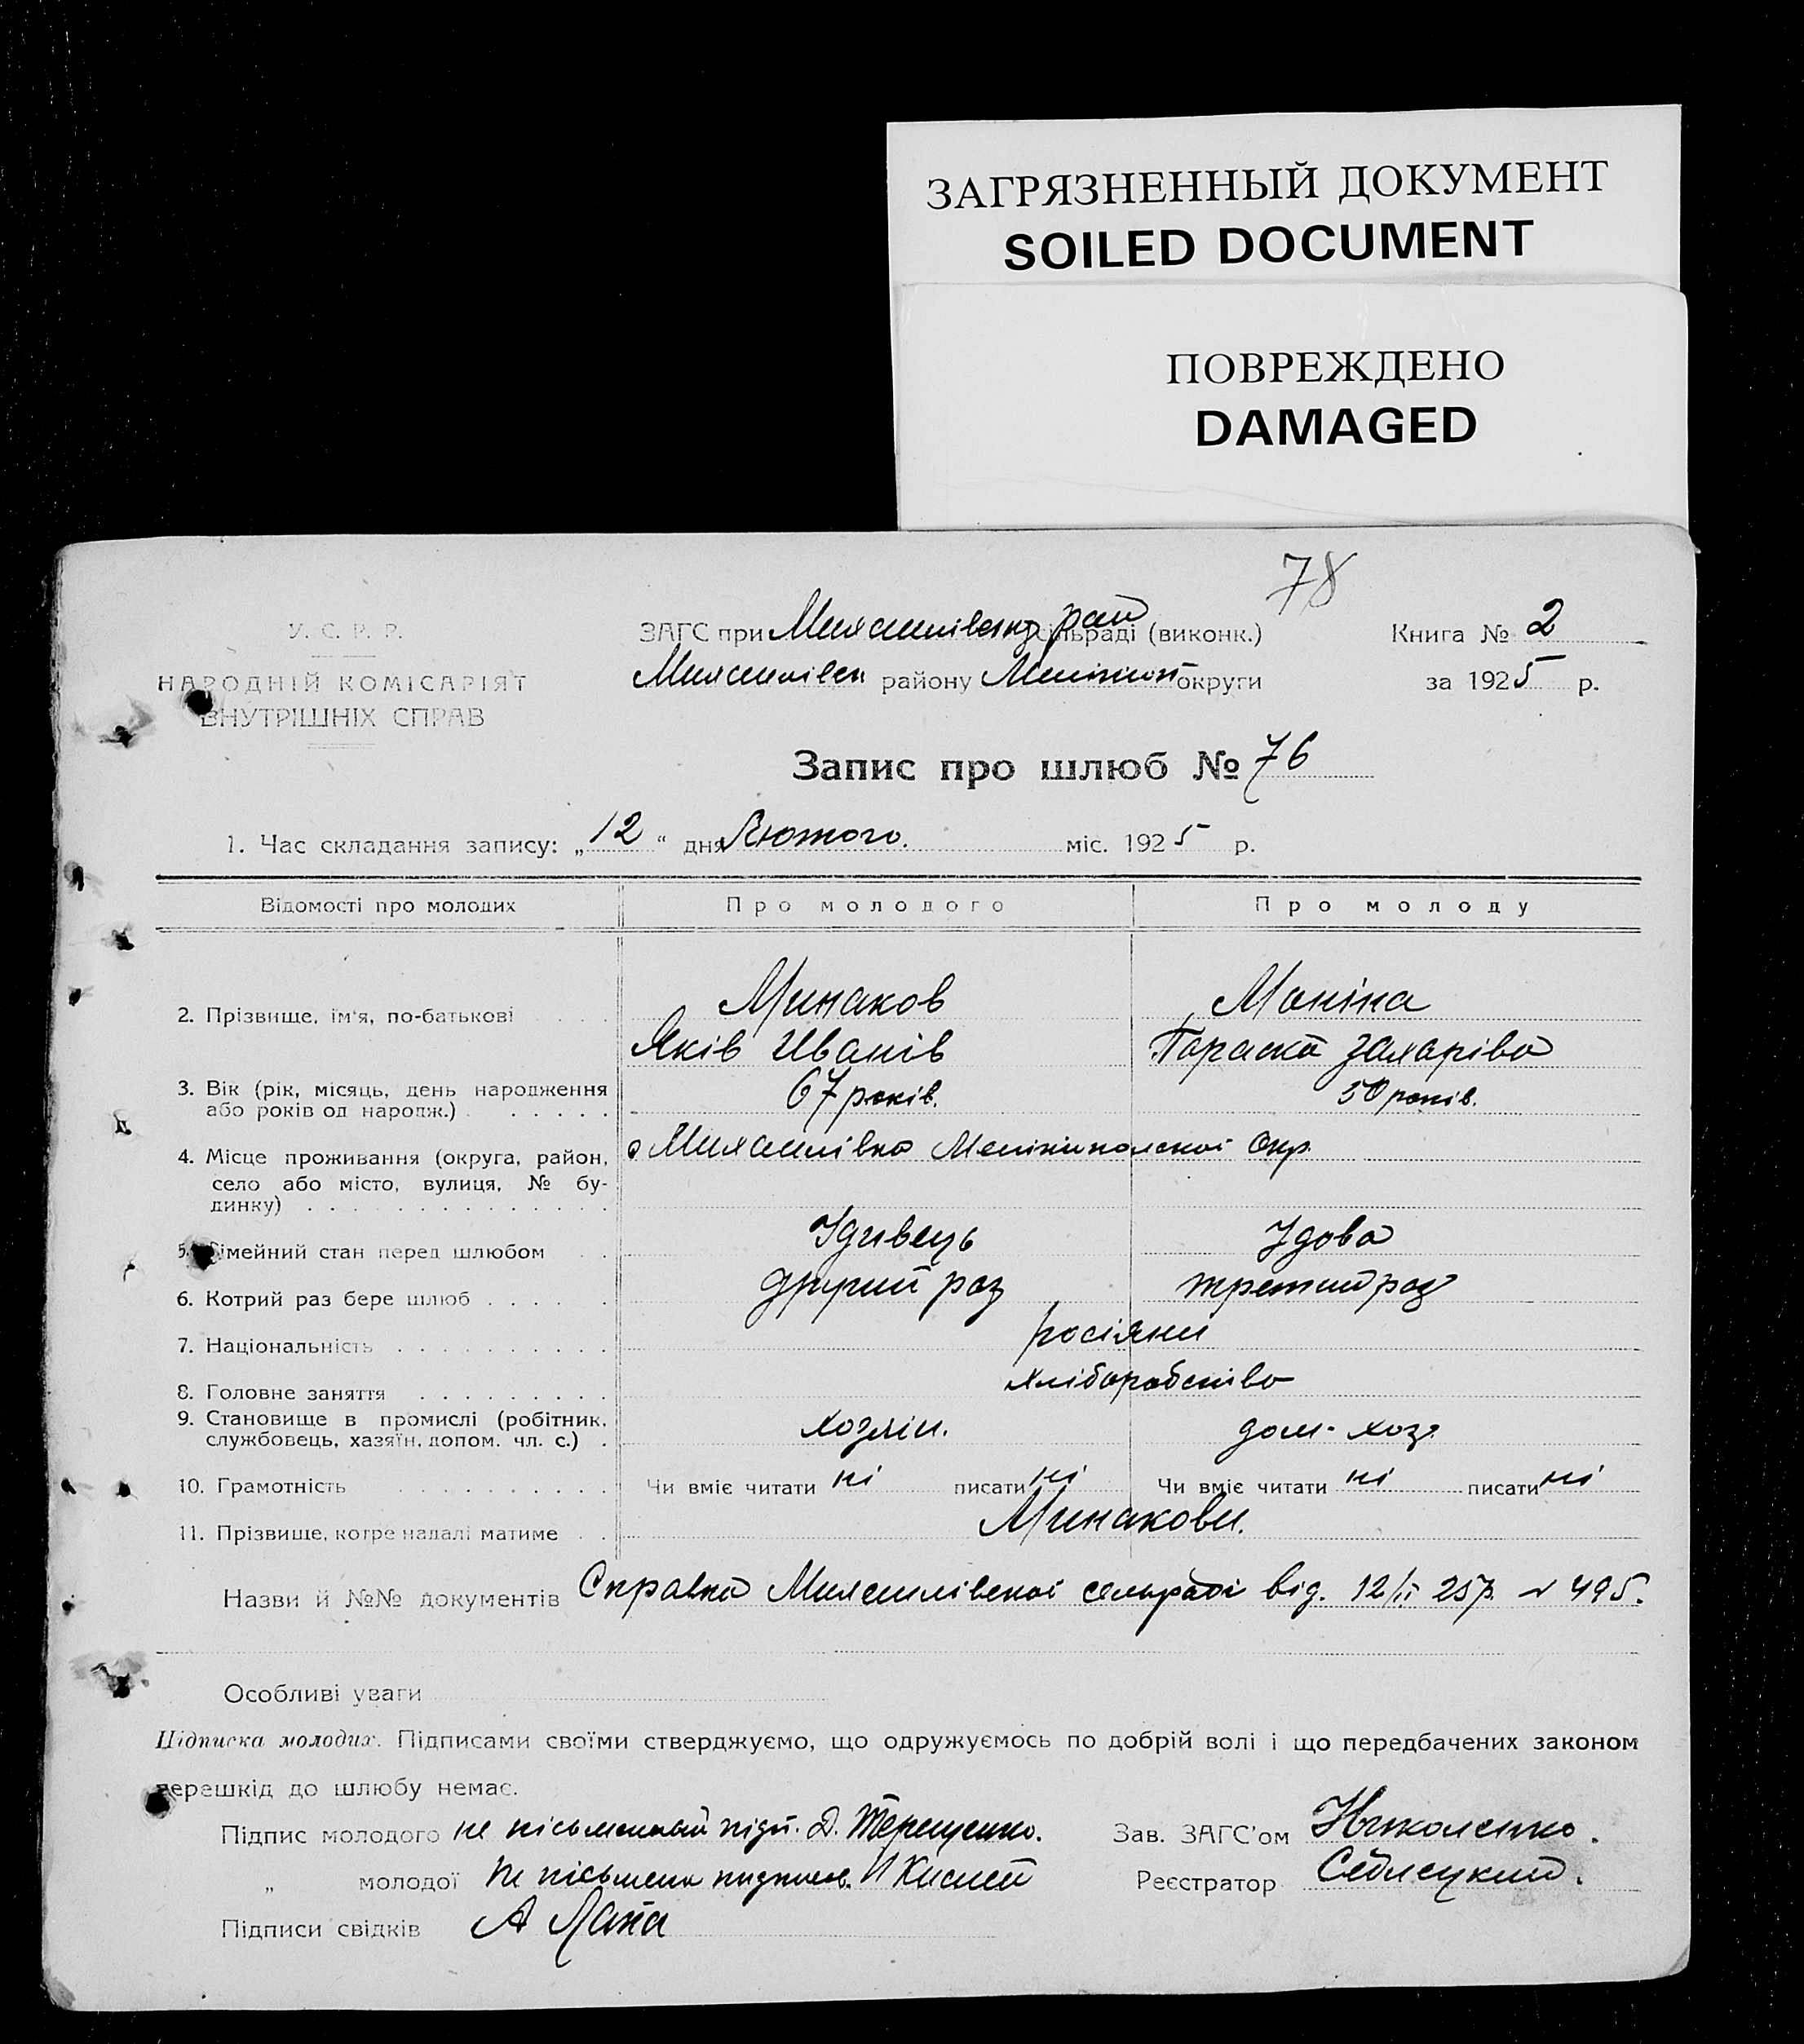 ЗАГРЯЗНЕННЫЙ ДОКУМЕНТ
SOILED DOCUMENT
ПОВРЕЖДЕНО
DAMAGED
78
У. С. Р. Р.
НАРОДНІЙ КОМІСАРІЯТ
ВНУТРІШНІХ СПРАВ
ЗАГС при рай сільраді (виконк.)
району округи
Книга № 2
за 1925 р.
Запис про шлюб № 76
1. Час складання запису: „12“ дня Лютого. міс. 1925 р.
Відомості про молодих Про молодого Про молоду
2. Прізвище, ім'я, по-батькові Минаков Моніна
Яків Иванів Параска Захаріва
3. Вік (рік, місяць, день народження або років од народж.) 67 років. 50 років.
4. Місце проживання (округа, район, село або місто, вулиця, № будинку) Окр.
5. Сімейний стан перед шлюбом Удивець Удова
6. Котрий раз бере шлюб другий раз третий раз
7. Національність росіяни
8. Головне заняття хліборобство
9. Становище в промислі (робітник, службовець, хазяїн, допом. чл. с.) хозяін. дом. хоз.
10. Грамотність Чи вміє читати ні писати ні Чи вміє читати ні писати ні
11. Прізвище, котре надалі матиме Минакови.
Назви й №№ документів Справка сельради від. 12/II 25р. № 495.
Особливі уваги
Підписка молодих. Підписами своїми стверджуємо, що одружуємось по добрій волі і що передбачених законом
перешкід до шлюбу немає.
Підпис молодого не пісьменний підп. Д. Терещенко.
„ молодої не пісьмена Кислий
Підписи свідків А Лапа
Зав. ЗАГС'ом Николенко.
Реєстратор